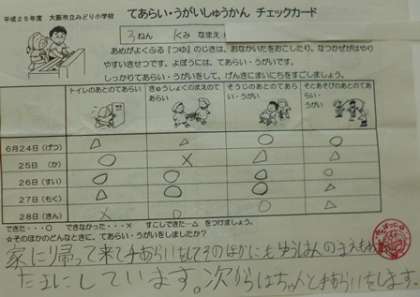 平成25年度 大阪市立みどり小学校
てあらい・うがいしゅうかん チェックカード
3ねん Kみ なまえ
あめがよくふる「つゆ」のじきは、おなかいたをおこしたり、なつかぜがはやり
やすいきせつです。よぼうには、てあらい・うがいです。
しっかりてあらい・うがいをして、げんきにまいにちをすごしましょう。
トイレのあとのてあらい きゅうしょくのまえのてあらい そうじのあとのてあらい・うがい そとあそびのあとのてあらい・うがい
6月24日(げつ) △ △ ○ ○
25日(か) ○ × △ △
26日(すい) ○ ○ ○ ○
27日(もく) △ ○ △ ○
28日(きん) × ○ ○ △
できた・・・○ できなかった・・・× すこしできた・・・△ をつけましょう。
☆そのほかのどんなときに、てあらい・うがいをしましたか?
家に帰って来て手あらいをしてそのほかにもゆうはんのまえも
たまにしています。次からはちゃんと手あらいをします